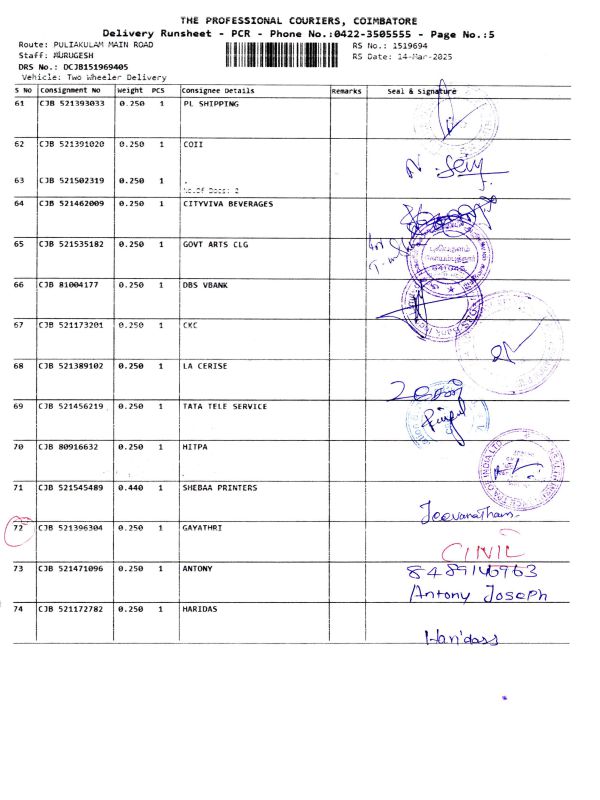 THE PROFESSIONAL COURIERS, COIMBATORE
Delivery Runsheet - PCR - Phone No.:0422-3505555 - Page No.:5
Route: PULIAKULAM MAIN ROAD
RS No.: 1519694
Staff: MURUGESH
RS Date: 14-Mar-2025
DRS No.: DCJB151969405
Vehicle: Two Wheeler Delivery
S No Consignment No Weight PCS Consignee Details Remarks Seal & Signature
61 CJB 521393033 0.250 1 PL SHIPPING
62 CJB 521391020 0.250 1 COII
63 CJB 521502319 0.250 1 .
No.Of Docs: 2
64 CJB 521462009 0.250 1 CITYVIVA BEVERAGES
65 CJB 521535182 0.250 1 GOVT ARTS CLG
66 CJB 81004177 0.250 1 DBS VBANK
67 CJB 521173201 0.250 1 CKC
68 CJB 521389102 0.250 1 LA CERISE
69 CJB 521456219 0.250 1 TATA TELE SERVICE
70 CJB 80916632 0.250 1 HITPA
71 CJB 521545489 0.440 1 SHEBAA PRINTERS
Jeevanatham
72 CJB 521396304 0.250 1 GAYATHRI
CIVIL
73 CJB 521471096 0.250 1 ANTONY
8489146963
Antony Joseph
74 CJB 521172782 0.250 1 HARIDAS
Haridass